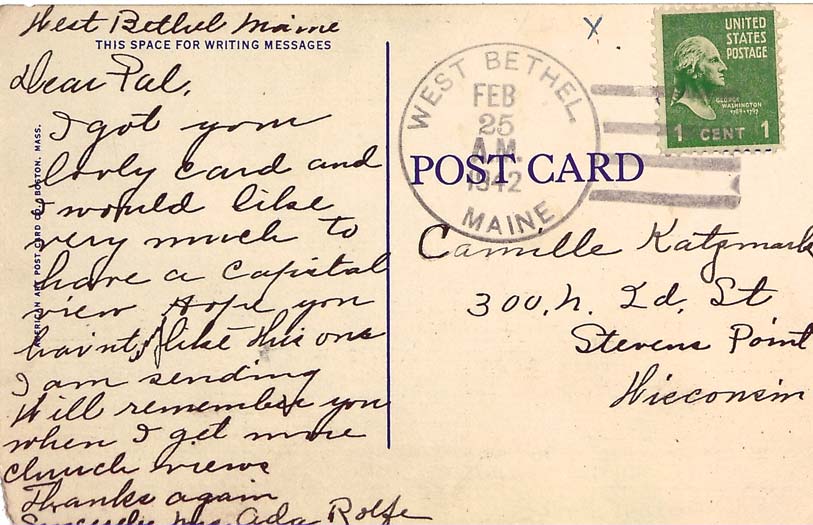 West Bethel Maine
THIS SPACE FOR WRITING MESSAGES
Dear Pal,
I got your
lovly card and
I would like
very much to
have a Capital
view Hope you
haint, like this one
I am sending
Will remember you
when I get more
church views
Thanks again
Sincerely Mrs. Ada Rolfe
AMERICAN ART POST CARD CO., BOSTON, MASS.
WEST BETHEL
FEB
25
A.M.
1942
MAINE
UNITED
STATES
POSTAGE
GEORGE
WASHINGTON
1789-1797
1 CENT 1
POST CARD
x
Camille Katzmark
300, N. 2d, St
Stevens Point
Wisconsin